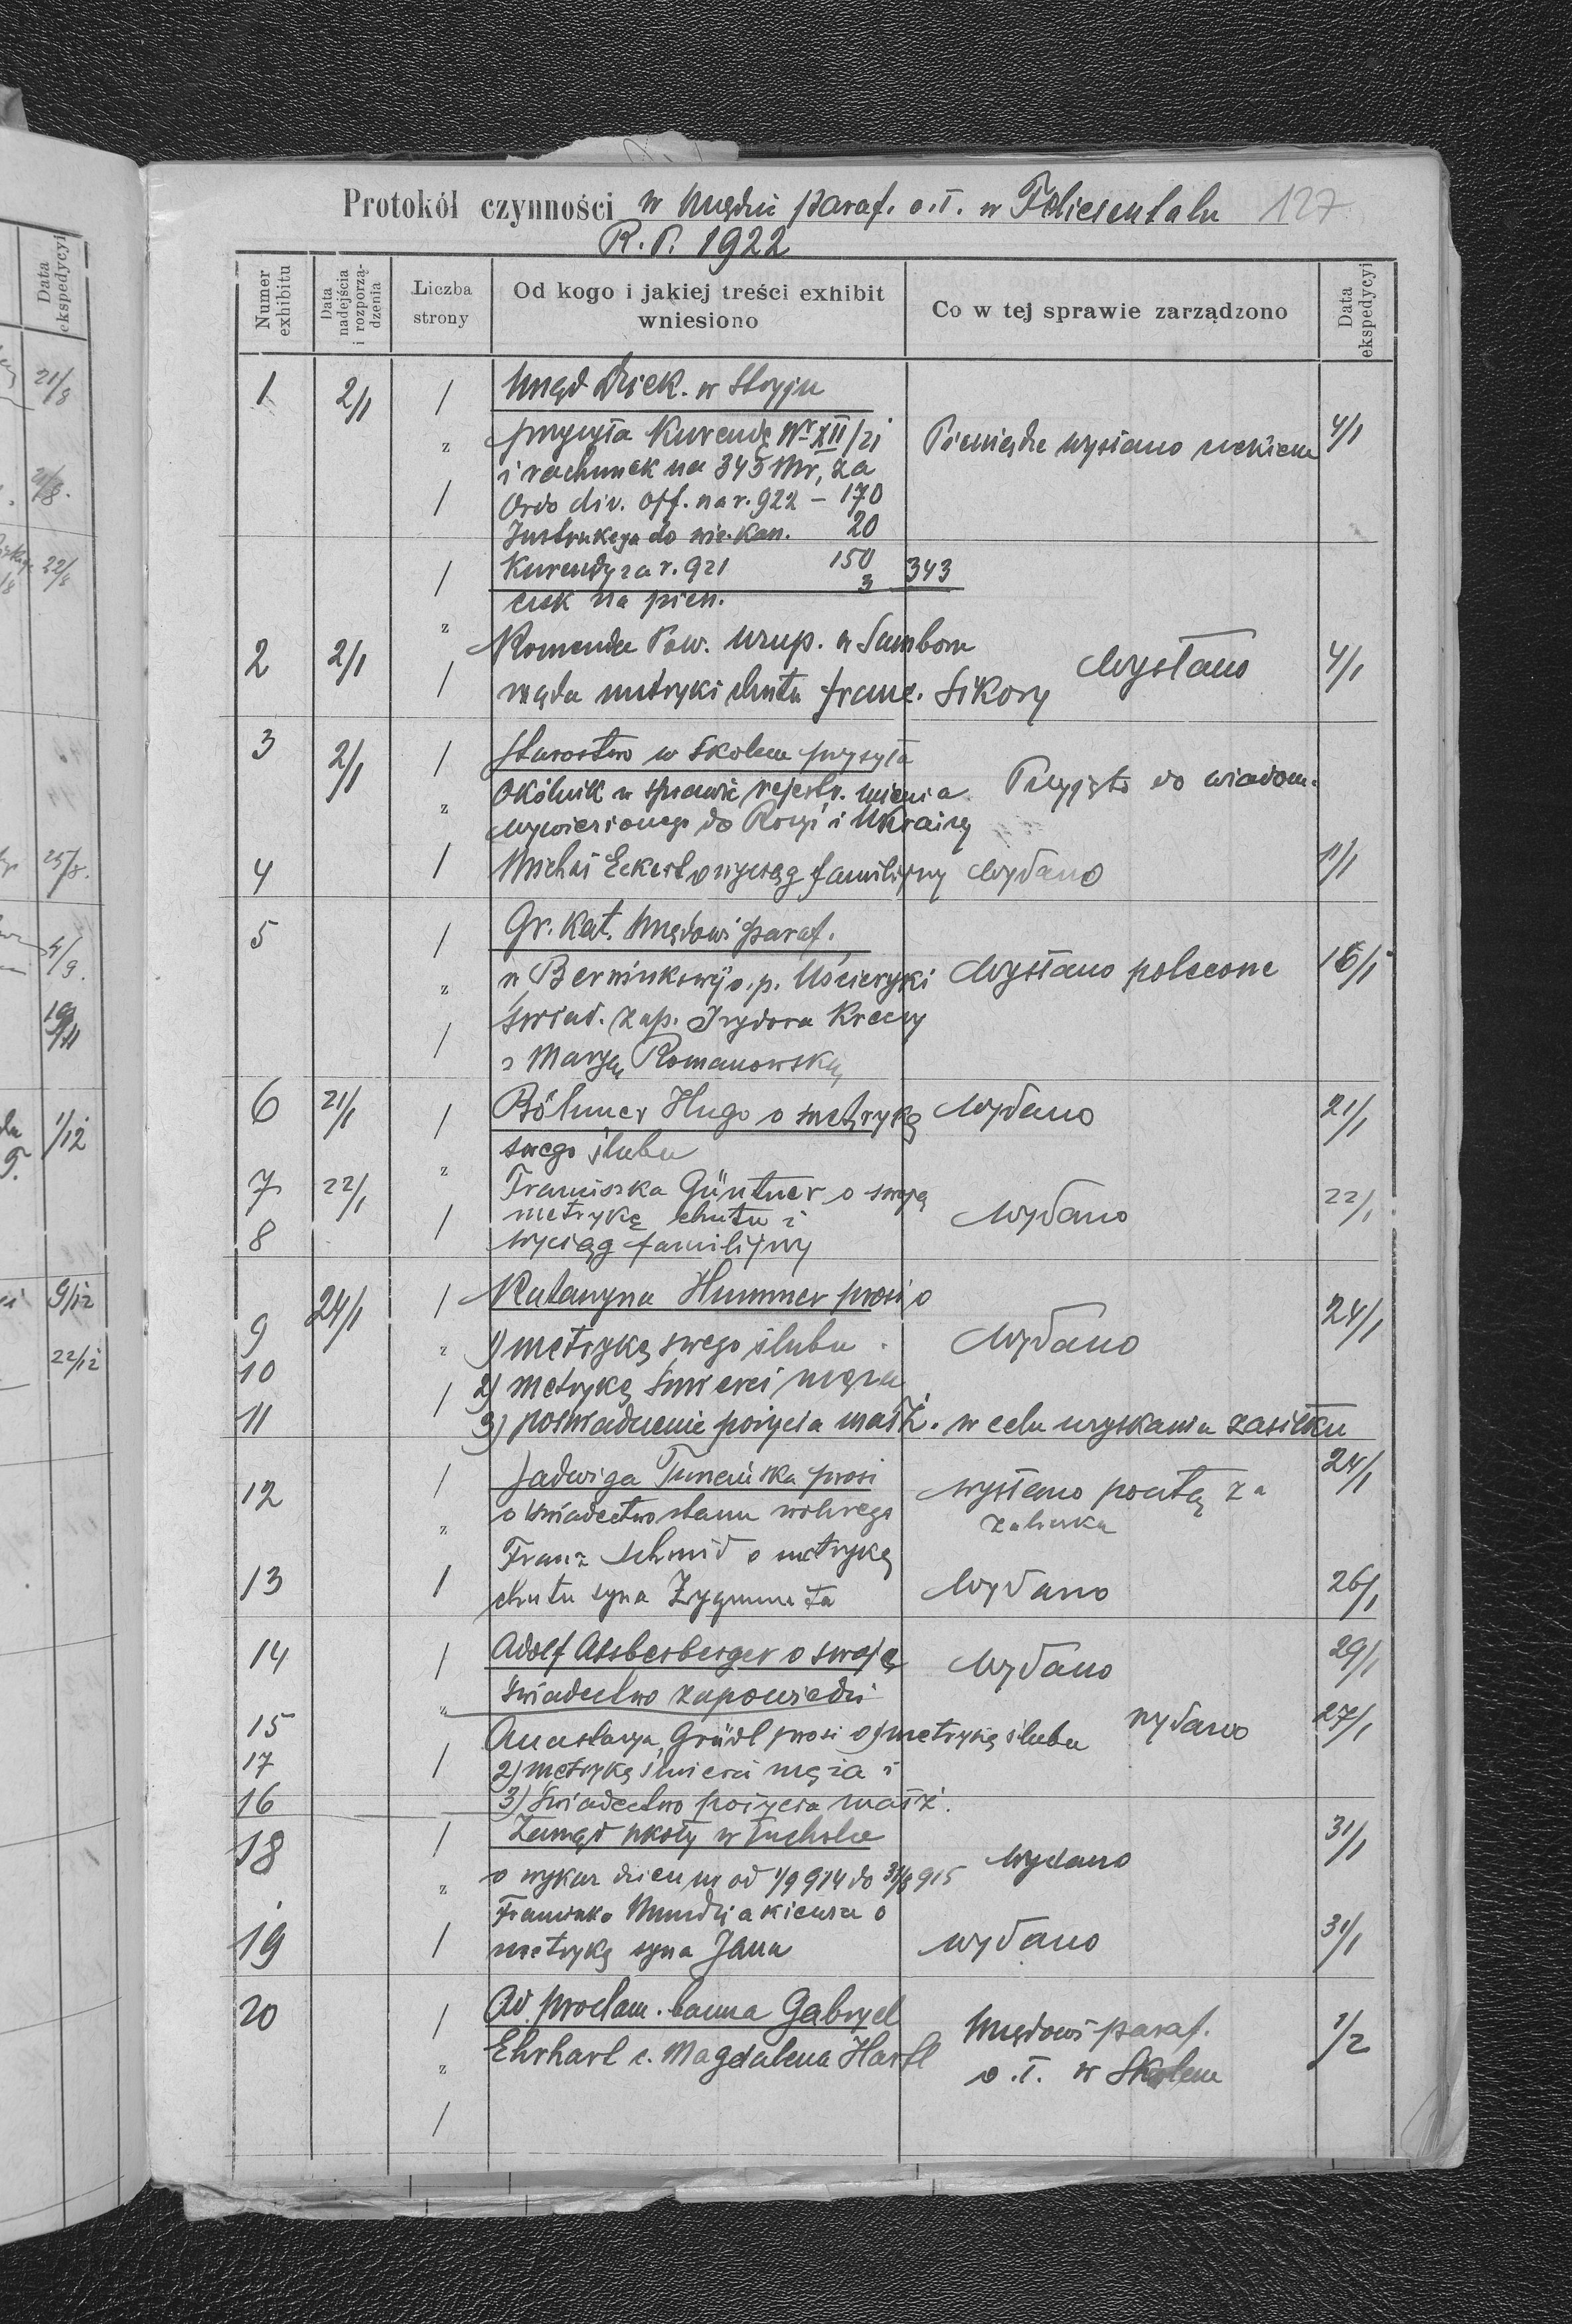 Protokół czynności w Urzędzie paraf. o.ł. w Felicientalu 127
R. P. 1922
Numer exhibitu
Data nadejścia i rozporządzenia
Liczba strony
Od kogo i jakiej treści exhibit wniesiono
Co w tej sprawie zarządzono
Data ekspedycyi
1 2/1 Urząd Dziek. w Stryju
przysyła Kurendę Nr XII/21 Pieniądze wysłano czekiem 4/1
i rachunek na 343 Mr, za
Ordo div. off. na r. 922 – 170
Instrukcya do wie. Kan. 20
Kurendy za r. 921 150
3 343
czek na pien.
2 2/1 Komenda Pow. Uzup. w Samborze Wysłano 4/1
żąda metryki chrztu Franc. Sikory
3 2/1 Starostwo w Skolem przysyła
Okólnik w sprawie rejestr. mienia Przyjęto do wiadom.
wywiezionego do Rosyi i Ukrainy
4 Michał Eckert o wyciąg familijny Wydano 11/1
5 Gr. Kat. Urzędowi paraf.
w o. p. Uścieryki Wysłano polecone 16/1
świad. zap. Izydora
z Maryą Romanowską
6 21/1 Böhmer Hugo o metrykę Wydano 21/1
swego ślubu
7 22/1 Franciszka Güntner o swoją
metrykę chrztu i Wydano 22/1
8 wyciąg familijny
24/1 Katarzyna Hummer prosi o
9 1) metrykę swego ślubu Wydano 24/1
10 2) metrykę śmierci męża
11 3) poświadczenie pożycia małż. w celu uzyskania zasiłku
12 Jadwiga prosi wysłano pocztą za 24/1
o świadectwo stanu wolnego zaliczką
Franz Schmid o metrykę
13 chrztu syna Zygmunta Wydano 26/1
14 Adolf o swoje Wydano 29/1
świadectwo zapowiedzi
15 Anastazya Gründl prosi o 1) metrykę ślubu wydano 27/1
17 2) metrykę śmierci męża i
16 3) świadectwo pożycia małż.
18 Zarząd szkoły w Tucholce Wydano 31/1
o wykaz dzieci ur od 1/9 914 do 31/8 915
Franciszka o
19 metrykę syna Jana wydano 31/1
20 Ad proclam. banna Gabryel Urzędowi paraf. 1/2
Ehrharl c. Magdalena Hartl o.ł. w Skolem
Data ekspedycyi
21/8
22/8
25/8.
4/9.
1/12
9/12
22/12